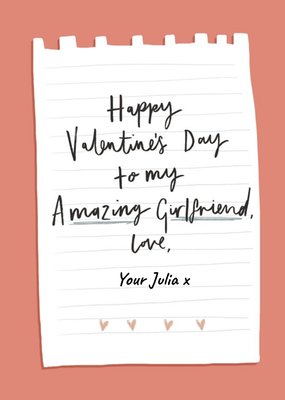 Happy
Valentine's Day
to my
Amazing Girlfriend,
love,
Your Julia x